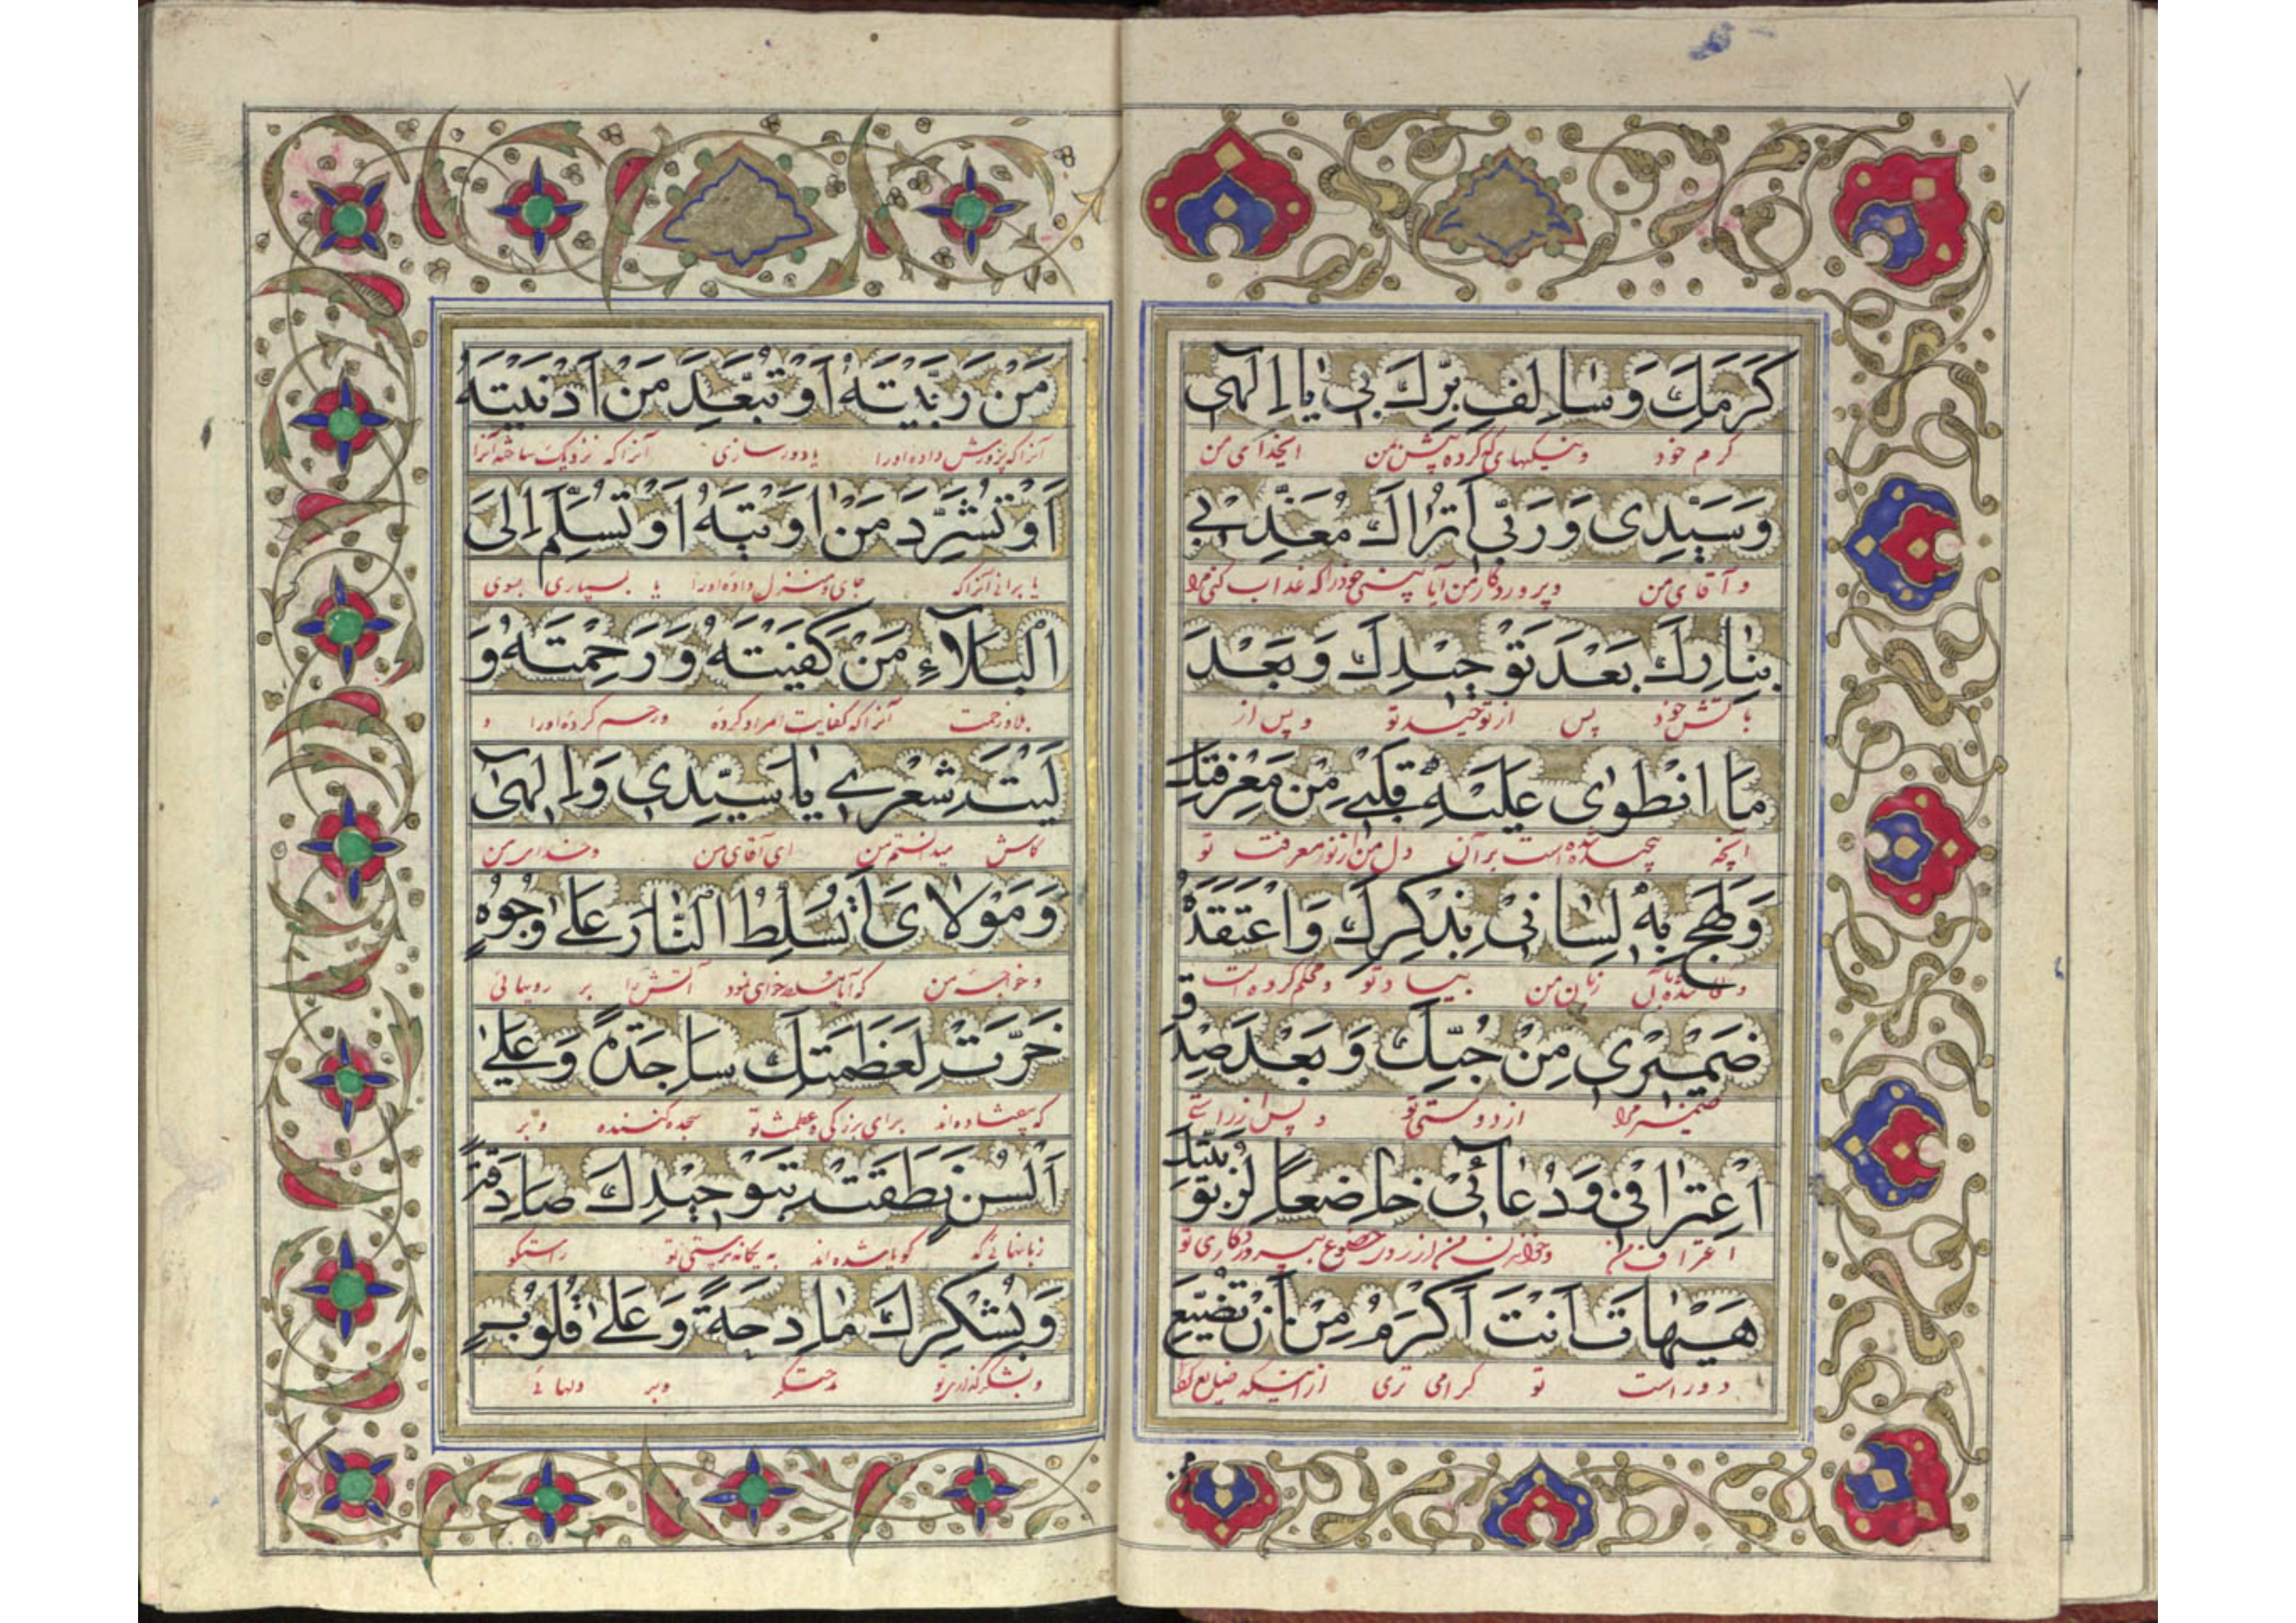 ٧
كَرَمِكَ وَسٰالِفِ بِرِّكَ بى يٰا اِلٰهى
كرم خود ونيكيهاى كه كرده پيش من ايخداى من
وَسَيِّدِى وَرَبّى اَتُرٰاكَ مُعَذِّبى
و آقاى من وپروردگار من آيا بينى خودرا كه عذاب كنى مرا
بِنٰارِكَ بَعْدَ تَوْحِيْدِكَ وَبَعْدَ
بآتش خود پس از توحيد تو و پس از
مَا انْطَوٰى عَلَيْهِ قَلْبى مِنْ مَعْرِفَتِكَ
آنچه پيچيده شده است بر آن دل من از نور معرفت تو
وَلَهِجَ بِهٖ لِسٰانى بِذِكْرِكَ وَاعْتَقَدَهُ
و زبان من بياد تو ومحكم كرده است
ضَمْيْرى مِنْ حُبِّكَ وَبَعْدَ صِدْقِ
ضمير مرا از دوستى تو و پس از راستى
اعْتِرٰافى وَدُعٰائى خٰاضِعاً لِرُبُوبِيَّتِكَ
اعتراف من وخواندن من از روى خضوع بپروردگارى تو
هَيْهٰاتَ اَنْتَ اَكْرَمُ مِنْ اَنْ تُضَيِّعَ
دور است تو گرامى ترى از اينكه ضايع كنى
مَنْ رَبَّيْتَهُ اَوْ تُبَعِّدَ مَنْ اَدْنَيْتَهُ
آنرا كه پرورش داده اورا يا دور سازى آنرا كه نزديك ساخته آنرا
اَوْ تُشَرِّدَ مَنْ اٰوَيْتَهُ اَوْ تُسَلِّمَ اِلَى
يا برانى آنرا كه جاى ومنزل داده اورا يا بسپارى بسوى
الْبَلآءِ مَنْ كَفَيْتَهُ وَرَحِمْتَهُ وَ
بلا وزحمت آنرا كه كفايت امر او كرده ورحم كرده اورا و
لَيْتَ شِعْرى يٰا سَيِّدِى وَاِلٰهى
كاش ميدانستم من اى آقاى من وخداى من
وَمَوْلاٰىَ اَتُسَلِّطُ النّٰارَ عَلٰى وُجُوهٍ
وخواجه من كه آيا مسلط خواى نمود آتش را بر رويهائى
خَرَّتْ لِعَظَمَتِكَ سٰاجِدَةً وَعَلٰى
كه بيفتاده اند براى بزرگى وعظمت تو سجده كننده وبر
اَلْسُنٍ نَطَقَتْ بِتَوْحِيْدِكَ صٰادِقَةً
زبانهائى كه گويا شده اند به يگانه پرستى تو راستگو
وَبِشُكْرِكَ مٰادِحَةً وَعَلٰى قُلُوبٍ
وبشكر گذارى تو مدحتگر وبر دلهائى